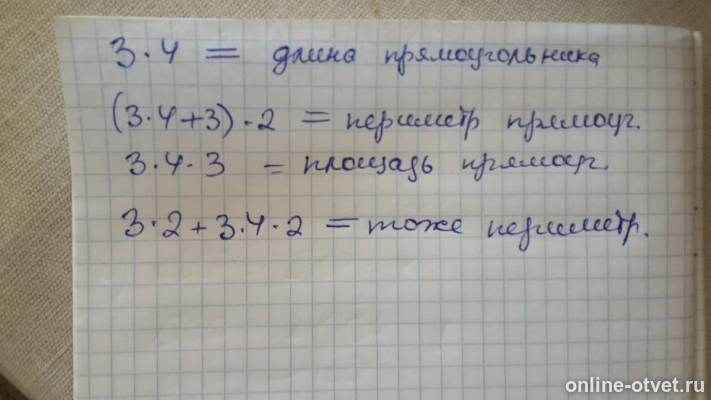 3·4 = длина прямоугольника
(3·4+3)·2 = периметр прямоуг.
3·4·3 = площадь прямоуг.
3·2+3·4·2 = тоже периметр.
online-otvet.ru